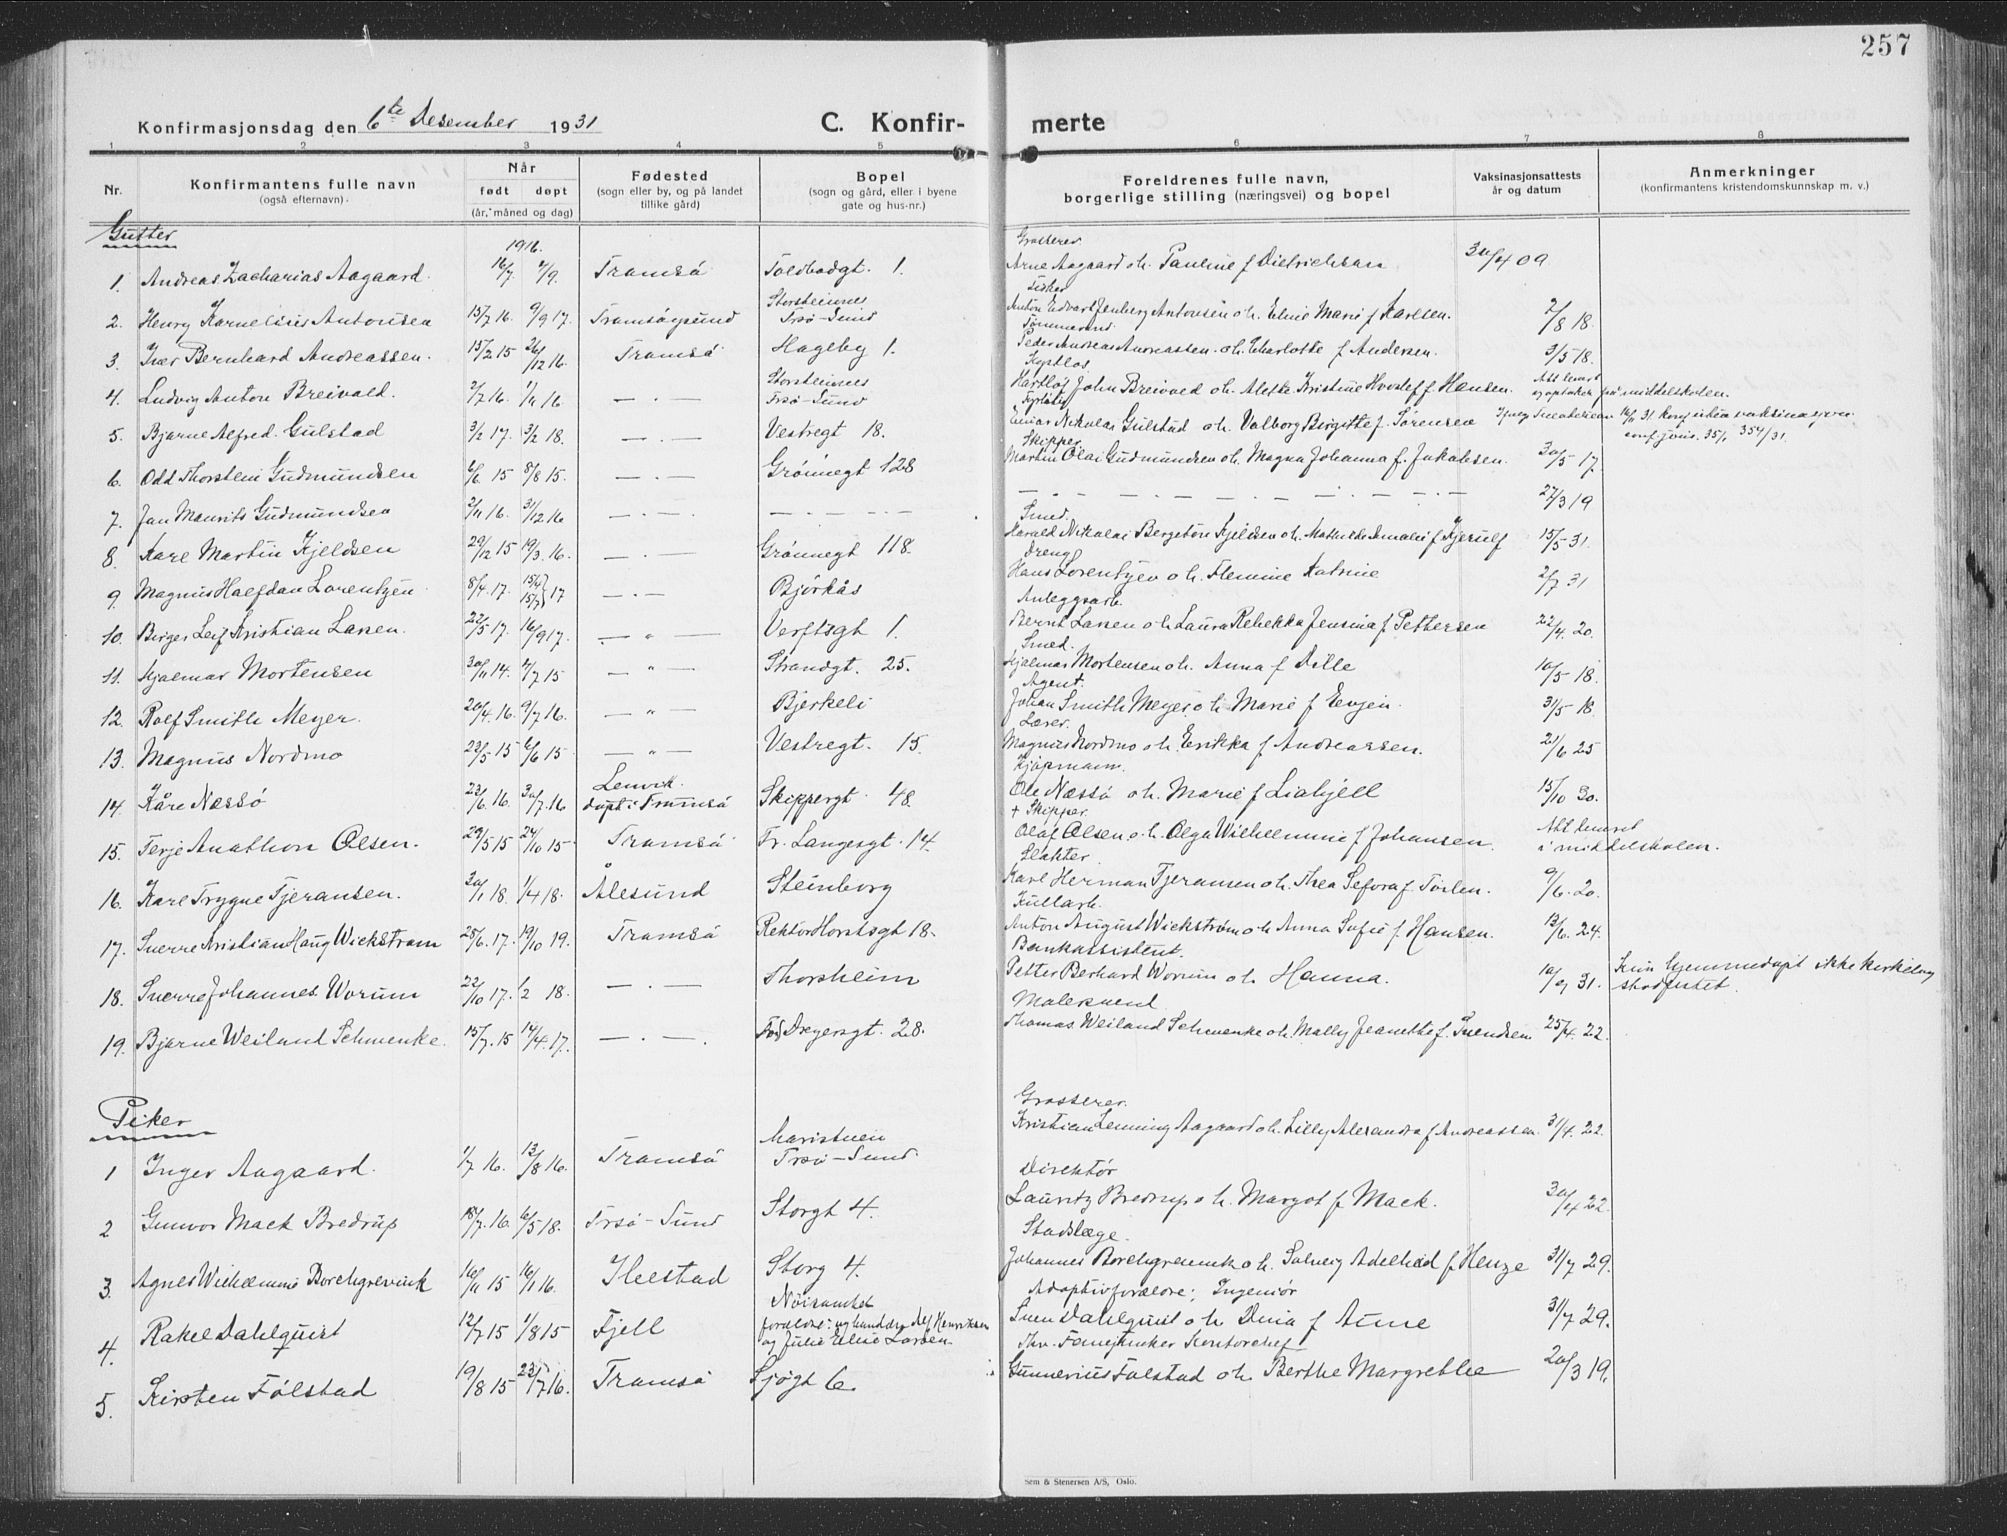 257
Konfirmasjonsdag den 6te Desember 1931 C. Konfir- merte
1 2 3 4 5 6 7 8
Nr. Konfirmantens fulle navn (også efternavn). Når født døpt (år, måned og dag) Fødested (sogn eller by, og på landet tillike gård) Bopel (sogn og gård, eller i byene gate og hus-nr.) Foreldrenes fulle navn, borgerlige stilling (næringsvei) og bopel Vaksinasjonsattests år og datum Anmerkninger (konfirmantens kristendomskunnskap m. v.)
Gutter
1916. Grosserer
1. Andreas Zacharias Aagaard. 16/7 2/9. Tromsø Toldbodgt. 1. Arne Aagaard o h. Pauline f Dietrichsen 30/4 09
Fisker
2. Henry Kornelius Antonsen 15/7 16. 9/9 17. Tromsøysund Storsteinnes Trsø-Sund Anton Edvart Jenberg Antonsen o h. Eline Marie f Karlsen. 2/8 18.
Tømmermand
3. Iver Bernhard Andreassen. 15/2 15 26/12 16. Tromsø Hageby 1. Peder Andreas Andreassen o h. Charlotte f Andersen. 3/5 18.
4. Ludvig Anton Breivold. 2/7 16. 1/11 16 — . — Storsteinnes Trsø-Sund Hartløf John Breivold o h. Aletta Kristine Hvoslef f Hansen. Att levert og optaker på middelskolen.
5. Bjarne Alfred Gulstad 3/2 17. 3/2 18. — . — Vestregt 18. Einar Nikolai Gulstad o h. Valborg Birgitte f. Sørensen
Skipper
6. Odd Thorstein Gudmundsen 6/6. 15 8/8 15. — . — Grønnegt 128 Martin Olai Gudmundsen o h. Magna Johanna f. Jakobsen. 30/5 17.
7. Jan Maurits Gudmundsen 2/11 16. 31/12 16 — . — — . — . — — . — . — 27/3 19
Smed.
8. Kare Martin Kjeldsen 29/12 15 19/3. 16. — . — Grønnegt 118. Harald Nikolai Bergeton Kjeldsen o h. Mathilde Amalie f Kjerulf 15/5 31.
Dreng
9. Magnus Halfdan Lorentzen 8/4 17. 15/4 15/7 } 17 — . — Bjørkås Hans Lorentzen o h. Flemine Katrine 2/7 31
Anleggsarb.
10. Birger Leif Kristian Larsen. 22/5 17. 16/9 17. — " — Verftsgt 1. Bernt Larsen o h Laura Rebekka Jensine f Pettersen 22/4. 20.
Smed.
11. Hjalmar Mortensen 30/11 14. 4/7 15 — " — Strandgt. 25. Hjalmar Mortensen o h. Anna f Dille 10/5 18.
Agent.
12. Rolf Smith Meyer. 20/4. 16. 9/7 16. — " — Bjerkeli Johan Smith Meyer o h Marie f Evjen. 31/5 18.
Lærer.
13. Magnus Nordmo 23/5 15 6/6 15 — " — Vestregt. 15. Magnus Nordmo o h. Erikka f Andreassen. 21/6 25
Kjøpmann.
14. Kåre Næssø 23/6. 16. 30/7. 16 Lenvik. døpt i Tromsø Skippergt. 48. Ole Næssø o h. Marie f Liahjell 15/10 30.
+ Skipper.
15. Terje Anathon Olsen. 29/5 15 24/10 15 Tromsø Fr. Langesgt. 14. Olaf Olsen o. h. Olga Wilhelmine f Johansen. Att levert i middelskolen.
Slakter
16. Kare Trygve Tjeransen. 30/1 18. 1/4 18. Ålesund Steinborg Karl Herman Tjeransen o h. Thea Sefora f Torlen. 9/6. 20.
Kullarb.
17. Sverre Kristian Haug Wickstrøm 25/6. 17. 19/10 19. Tromsø Rektor Horstsgt 18. Anton August Wickstrøm o h Anna Sofie f Hansen. 13/6. 24.
Bankassistent.
18. Sverre Johannes Worum 22/10 17. 1/2 18. — . — Thorsheim Petter Berhard Worum o h. Hanna. 10/9 31. Kun hjemmedøpt ikke kirkelig stadfestet.
Malersvend
19. Bjarne Weiland Schwenke. 15/7. 15 14/4. 17. — . — . Fos Dreyersgt. 28. Thomas Weiland Schwenke o h. Mally Jeanette f. Svendsen 25/4. 22.
Piker
Grosserer.
1 Inger Aagaard. 1/7 16. 13/8 16. Tromsø Maristuen Trsø-Sund. Kristian Lenning Aagaard o h. Lilly Alexandra f Andreassen. 31/4. 22.
Direktør
2 Gunvor Mack Bredrup 18/7. 16. 6/5 18. Trsø-Sund Storgt 4. Lauritz Bredrup o h. Margot f Mack. 30/4 22.
Stadslæge.
3. Agnes Wilhelmine Borchgrevink 10/11 15 16/1 16. Heestad Storg 4. Johannes Borchgrevink o h. Solveig Adelheid f Henze 31/7 29.
Adoptivforældre: Ingeniør
4. Rakel Dahlquist 12/7 15 1/8 15 Fjell og Julie Eline Larsen. Sven Dahlquist o h Dina f Aune 31/7 29.
Kontorchef
5. Kirsten Følstad 19/8 15 23/7 16. Tromsø Sjøgt 6. Gunnerius Følstad o h. Berthe Margrethe 20/3 19.
Sem & Stenersen A/S, Oslo.